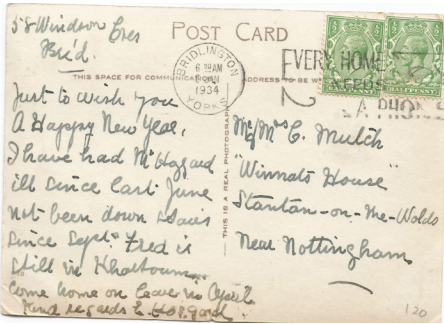 58 Windsor Cres
Brid.
POST CARD
THIS SPACE FOR COMMUNIC
ADDRESS TO BE W
BRIDLINGTON
1934
YORKS
EVERY HOME
NEEDS
A PHONE
HALFPENNY
Just to wish you
A Happy New Year,
I have had Mr Haggard
ill since last June
not been down stairs
since Sept. Fred is
still in Khartoum
Come home on leave in April
Kind regards
THIS IS A REAL PHOTOGRAPH
Mr/Mrs C. Mulch
"Winnats House"
Stanton-on-the-Wolds
Near Nottingham
120